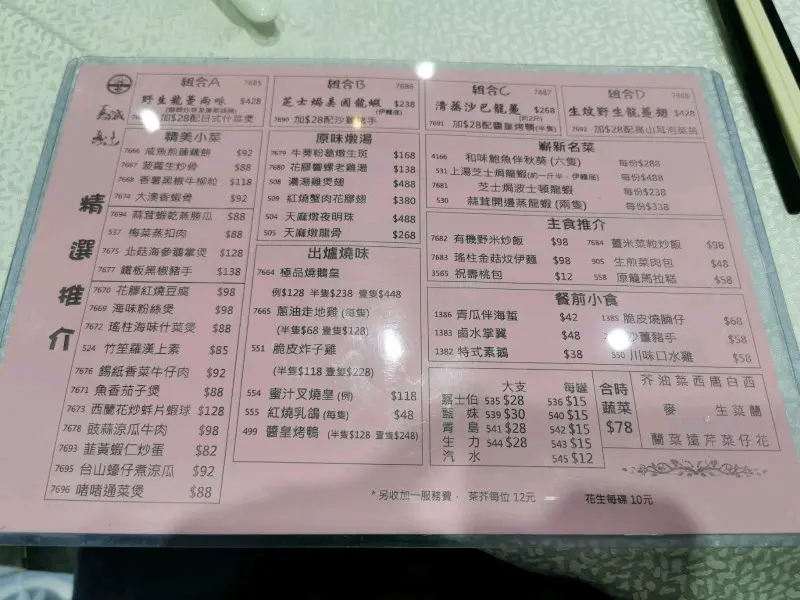 精選推介
組合A 7685
野生龍躉兩味 $428
加$28配日式什菜煲
組合B 7686
芝士焗美國龍蝦 $238
(伊麵底)
7690 加$28配沙薑豬手
組合C 7687
清蒸沙巴龍躉 $268
(約2斤)
7691 加$28配醬皇烤鴨(半隻)
組合D 7688
生炆野生龍躉翅 $428
7692 加$28配高山耳泡菜苗
精美小菜
7666 咸魚煎蓮藕餅 $92
7667 菠蘿生炒骨 $88
7668 香薯黑椒牛柳粒 $118
7674 大澳香蝦骨 $92
7694 蒜茸蝦乾蒸勝瓜 $88
537 梅菜蒸扣肉 $88
7675 北菇海參鵝掌煲 $128
7677 鐵板黑椒豬手 $138
7670 花膠紅燒豆腐 $98
7669 海味粉絲煲 $98
7672 瑤柱海味什菜煲 $88
524 竹笙羅漢上素 $85
7676 錫紙香菜牛仔肉 $92
7671 魚香茄子煲 $88
7673 西蘭花炒蚌片蝦球 $128
7678 豉蒜涼瓜牛肉 $98
7693 韮黃蝦仁炒蛋 $82
7695 台山蠔仔煮涼瓜 $92
7696 啫啫通菜煲 $88
原味燉湯
7679 牛蒡粉葛燉生斑 $168
7680 花膠響螺老雞湯 $138
508 濃湯雞煲翅 $488
509 紅燒蟹肉花膠翅 $380
504 天麻燉夜明珠 $488
505 天麻燉龍骨 $268
出爐燒味
7664 極品燒鵝皇
例$128 半隻$238 壹隻$448
7665 蔥油走地雞 (每隻)
(半隻$68 壹隻$128)
551 脆皮炸子雞
(半隻$118 壹隻$228)
554 蜜汁叉燒皇 (例) $118
555 紅燒乳鴿 (每隻) $48
499 醬皇烤鴨 (半隻$128 壹隻$248)
嶄新名菜
4166 和味鮑魚伴秋葵 (六隻) 每份$288
531 上湯芝士焗龍蝦(約一斤半、伊麵底) 每份$488
7681 芝士焗波士頓龍蝦 每份$238
530 蒜茸開邊蒸龍蝦 (兩隻) 每份$338
主食推介
7682 有機野米炒飯 $98 7684 薑米菜粒炒飯 $98
7683 瑤柱金菇炆伊麵 $98 905 生煎菜肉包 $48
3565 祝壽桃包 $12 558 原籠馬拉糕 $58
餐前小食
1386 青瓜伴海蜇 $42 1385 脆皮燒腩仔 $68
1383 鹵水掌翼 $48 沙薑豬手 $58
1382 特式素鵝 $38 550 川味口水雞 $58
大支 每罐
嘉士伯 535 $28 536 $15
藍妹 539 $30 540 $15
青島 541 $28 542 $15
生力 544 $28 543 $15
汽水 545 $12
合時蔬菜 $78
芥油菜西唐白西
麥生菜蘭
蘭菜芹遠菜仔花
* 另收加一服務費， 茶芥每位 12元
花生每碟 10元